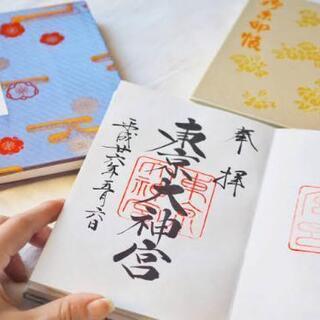 御朱印帳
奉拝
東京大神宮
平成廿六年五月六日